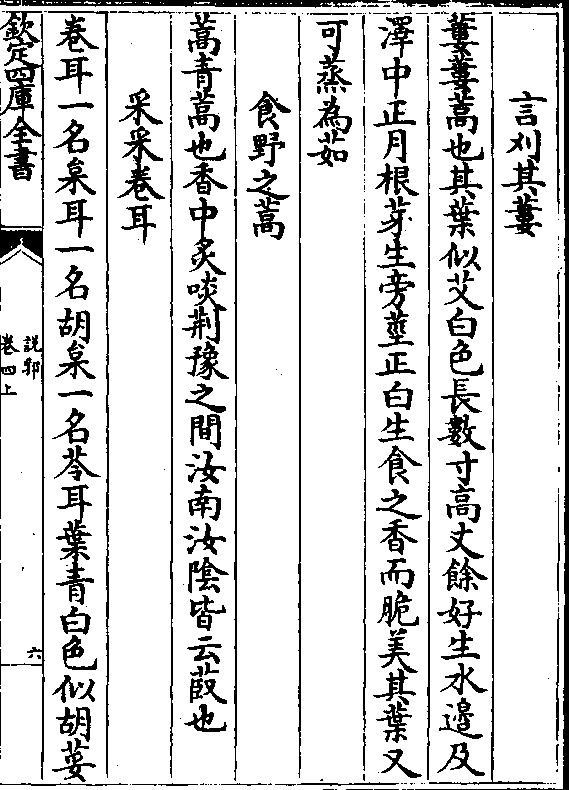 言刈其蔞
蔞蔞蒿也其葉似艾白色長數寸高丈餘好生水邊及
澤中正月根芽生旁莖正白生食之香而脆美其葉又
可蒸為茹
食野之蒿
蒿青蒿也香中炙啖荆豫之間汝南汝陰皆云菣也
采采卷耳
卷耳一名枲耳一名胡枲一名苓耳葉青白色似胡荽
欽定四庫全書
說郛
卷四上
六